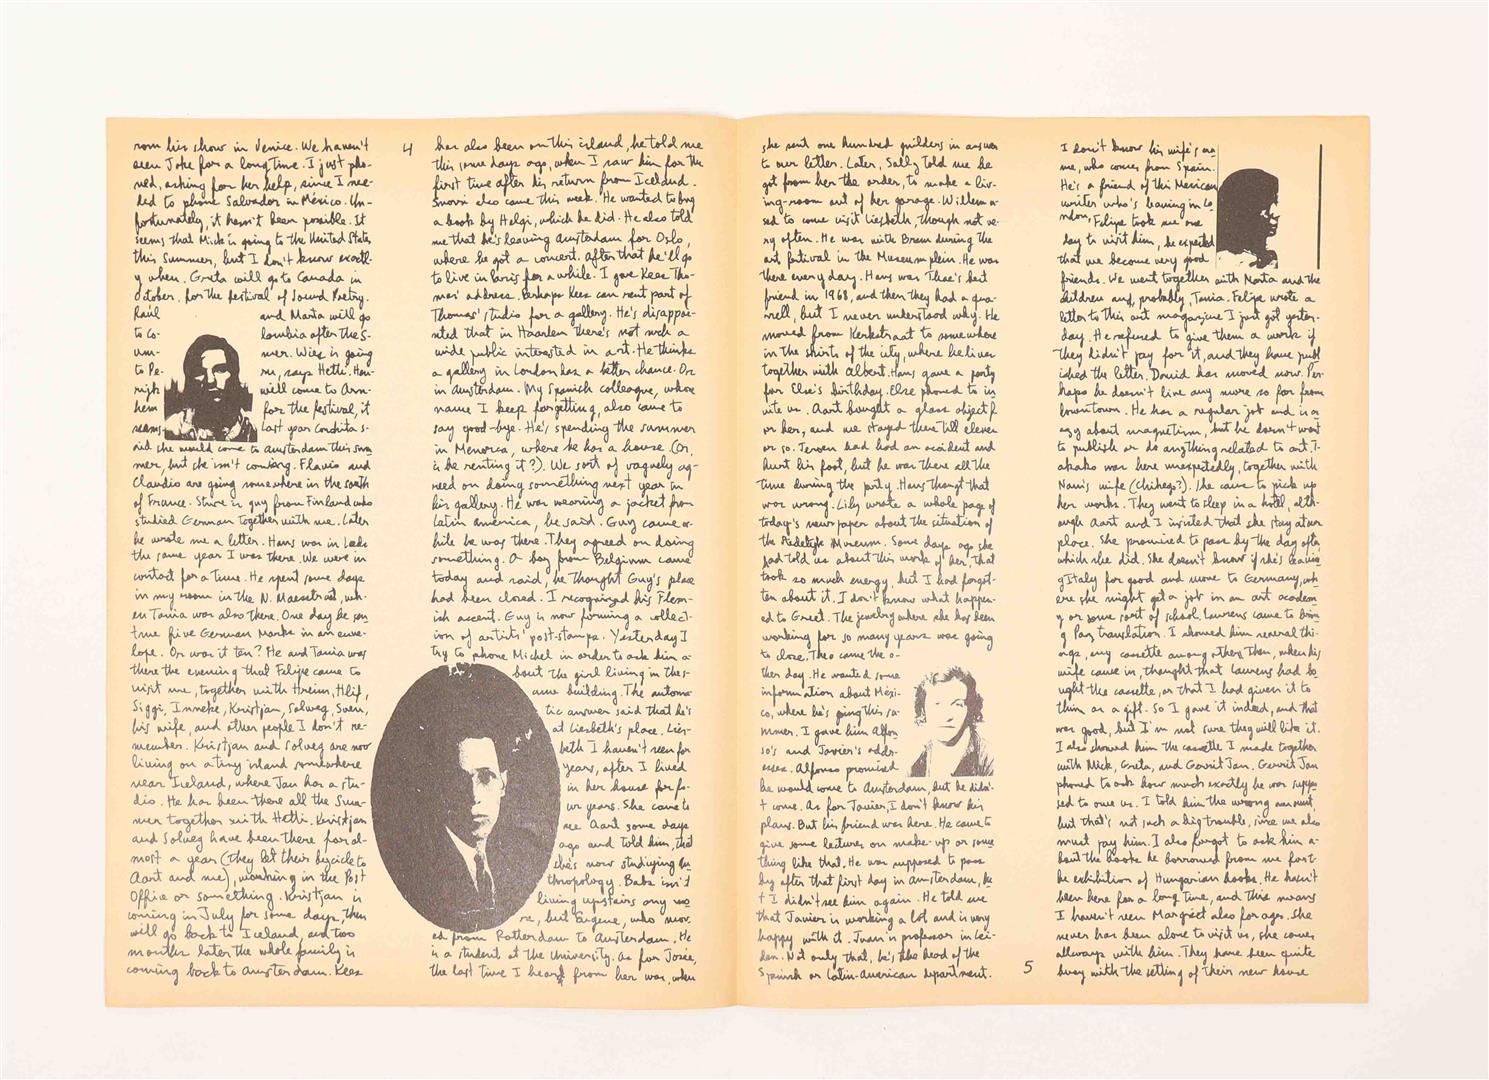 rom his show in Venice. We haven't
seen Joke for a long time. I just pho-
ned, asking for her help, since I nee-
ded to phone Salvador in México. Un-
fortunately, it hasn't been possible. It
seems that Mick is going to the United States
this summer, but I don't know exactl-
y when. Greta will go to Canada in
October, for the festival of Sound Poetry.
Raúl and Marta will go
to Co- lombia after the S-
um- mer. Wies is going
to Pe- ru, says Hetti. Hen-
rijk well come to Arn-
hem for the festival, it
seams. Last year Conchita s-
aid she would come to Amsterdam this sum
mer, but she isn't coming. Flavio and
Claudio are going somewhere in the south
of France. Sture is guy from Finland who
studied German together with me. Later
he wrote me a letter. Hans was in Leeds
the same year I was there. We were in
contact for a time. He spent some days
in my room in the N. Maesstraat, wh-
en Tania was also there. One day he sen
t me five German Marks in an enve-
lope. Or was it ten? He and Tania was
there the evening that Felipe came to
visit me, together with Hreinn, Hlif,
Siggi, Inneke, Kristjan, Solveg, Sven,
his wife, and other people I don't re-
member. Kristjan and Solveg are now
living on a tiny island somewhere
near Iceland, where Jan has a stu-
dio. He has been there all the Sum-
mer together with Hetti. Kristjan
and Solveg have been there for al-
most a year (they let their bicycle to
Aart and me), working in the Post
Office or something. Kristjan is
coming in July for some days, then
will go back to Iceland, and two
months later the whole family is
coming back to Amsterdam. Kees
4
has also been on this island, he told me
this some days ago, when I saw him for the
first time after his return from Iceland.
Snorri also came this week. He wanted to buy
a book by Helgi, which he did. He also told
me that he's leaving Amsterdam for Oslo,
where he got a concert. After that he'll go
to live in Paris for a while. I gave Kees Tho-
mas' address. Perhaps Kees can rent part of
Thomas' studio for a gallery. He's disappoi-
nted that in Haarlem there's not such a
wide public interested in art. He thinks
a gallery in London has a better chance. Or
in Amsterdam. My Spanish colleague, whose
name I keep forgetting, also came to
say good-bye. He's spending the summer
in Menorca, where he has a house. (Or,
is he renting it?). We sort of vaguely ag-
reed on doing something next year in
his gallery. He was wearing a jacket from
Latin America, he said. Guy came w-
hile he was there. They agreed on doing
something. A boy from Belgium came
today and said, he thought Guy's place
had been closed. I recognized his Flem-
ish accent. Guy is now forming a collect-
ion of artists' post-stamps. Yesterday I
try to phone Michel in order to ask him a-
bout the girl living in the s-
ame building. The automa-
tic answer said that he's
at Liesbeth's place. Lies-
beth I haven't seen for
years, after I lived
in her house for fo-
ur years. She came to
see Aart some days
ago and told him, that
she's now studying an
thropology. Babs isn't
living upstairs any mo
re, but Eugene, who mov-
ed from Rotterdam to Amsterdam. He
is a student at the University. As for Josée,
the last time I heard from her was, when
she sent one hundred guilders in answer
to our letter. Later, Sally told me he
got from her the order, to make a liv-
ing-room out of her garage. Willem u-
sed to come visit Liesbeth, though not ve-
ry often. He was with Bram during the
art festival in the Museumplein. He was
there every day. Hans was Thae's best
friend in 1968, and then they had a qua-
rrell, but I never understood why. He
moved from Kerkstraat to somewhere
in the skirts of the city, where he lives
together with Albert. Hans gave a party
for Else's birthday. Else phoned to in
vite us. Aart bought a glass object f
or her, and we stayed there till eleven
or so. Jeroen had had an accident and
hurt his foot, but he was there all the
time during the party. Hans thought that
was wrong. Lily wrote a whole page of
today's newspaper about the situation of
the Stedelijk Museum. Some days ago she
had told us about this work of her, that
took so much energy, but I had forgot-
ten about it. I don't know what happen-
ed to Greet. The jewelry where she has been
working for so many years was going
to close. Theo came the o-
ther day. He wanted some
information about Méxi-
co, where he's going this su-
mmer. I gave him Alfon
so's and Javier's addr-
esses. Alfonso promised
he would come to Amsterdam, but he didn'-
t come. As for Javier, I don't know his
plans. But his friend was here. He came to
give some letures on make-up or some
thing like that. He was supposed to pass
by after that first day in Amsterdam, bu
t I didn't see him again. He told me
that Javier is working a lot and is very
happy with it. Juan is professor in Lei-
den. Not only that, he's the head of the
Spanish or Latin-American department.
5
I don't know his wife's na
me, who comes from Spain.
He's a friend of this Mexican
writer who's leaving in Lo
ndon, Felipe took me one
day to visit him, he expected
that we become very good
friends. We went together with Marta and the
children and, probably, Tania. Felipe wrote a
letter to this art magazine I just got yester-
day. He refused to give them a work if
they didn't pay for it, and they have publ
ished the letter. David has moved now. Per
haps he doesn't live any more so far from
downtown. He has a regular job and is cr
azy about magnetism, but he doesn't want
to publish or do anything related to art. T-
akako was here unexpectedly, together with
Nam's wife (Chihego?). She came to pick up
her works. They went to sleep in a hotel, alth-
ough Aart and I insisted that she stay at our
place. She promised to pass by the day after,
which she did. She doesn't know if she's leavin
g Italy for good and move to Germany, wh
ere she might get a job in an art academ
y or some sort of school. Laurens came to brin
g Paz translation. I showed him several thi-
ngs, my cassette among others. Then, when his
wife came in, thought that Laurens had bo
ught the cassette, or that I had given it to
them as a gift. So I gave it indeed, and that
was good, but I'm not sure they will like it.
I also showed him the cassette I made together
with Mick, Greta, and Gerrit Jan. Gerrit Jan
phoned to ask how much exactly he was suppo
sed to owe us. I told him the wrong amount,
but that's not such a big trouble, since we also
must pay him. I also forgot to ask him a-
bout the books he borrowed from me for t-
he exhibition of Hungarian books. He hasn't
been here for a long time, and this means
I haven't seen Margreet also for ages. She
never has been alone to visit us, she comes
allways with him. They have been quite
busy with the setting of their new house